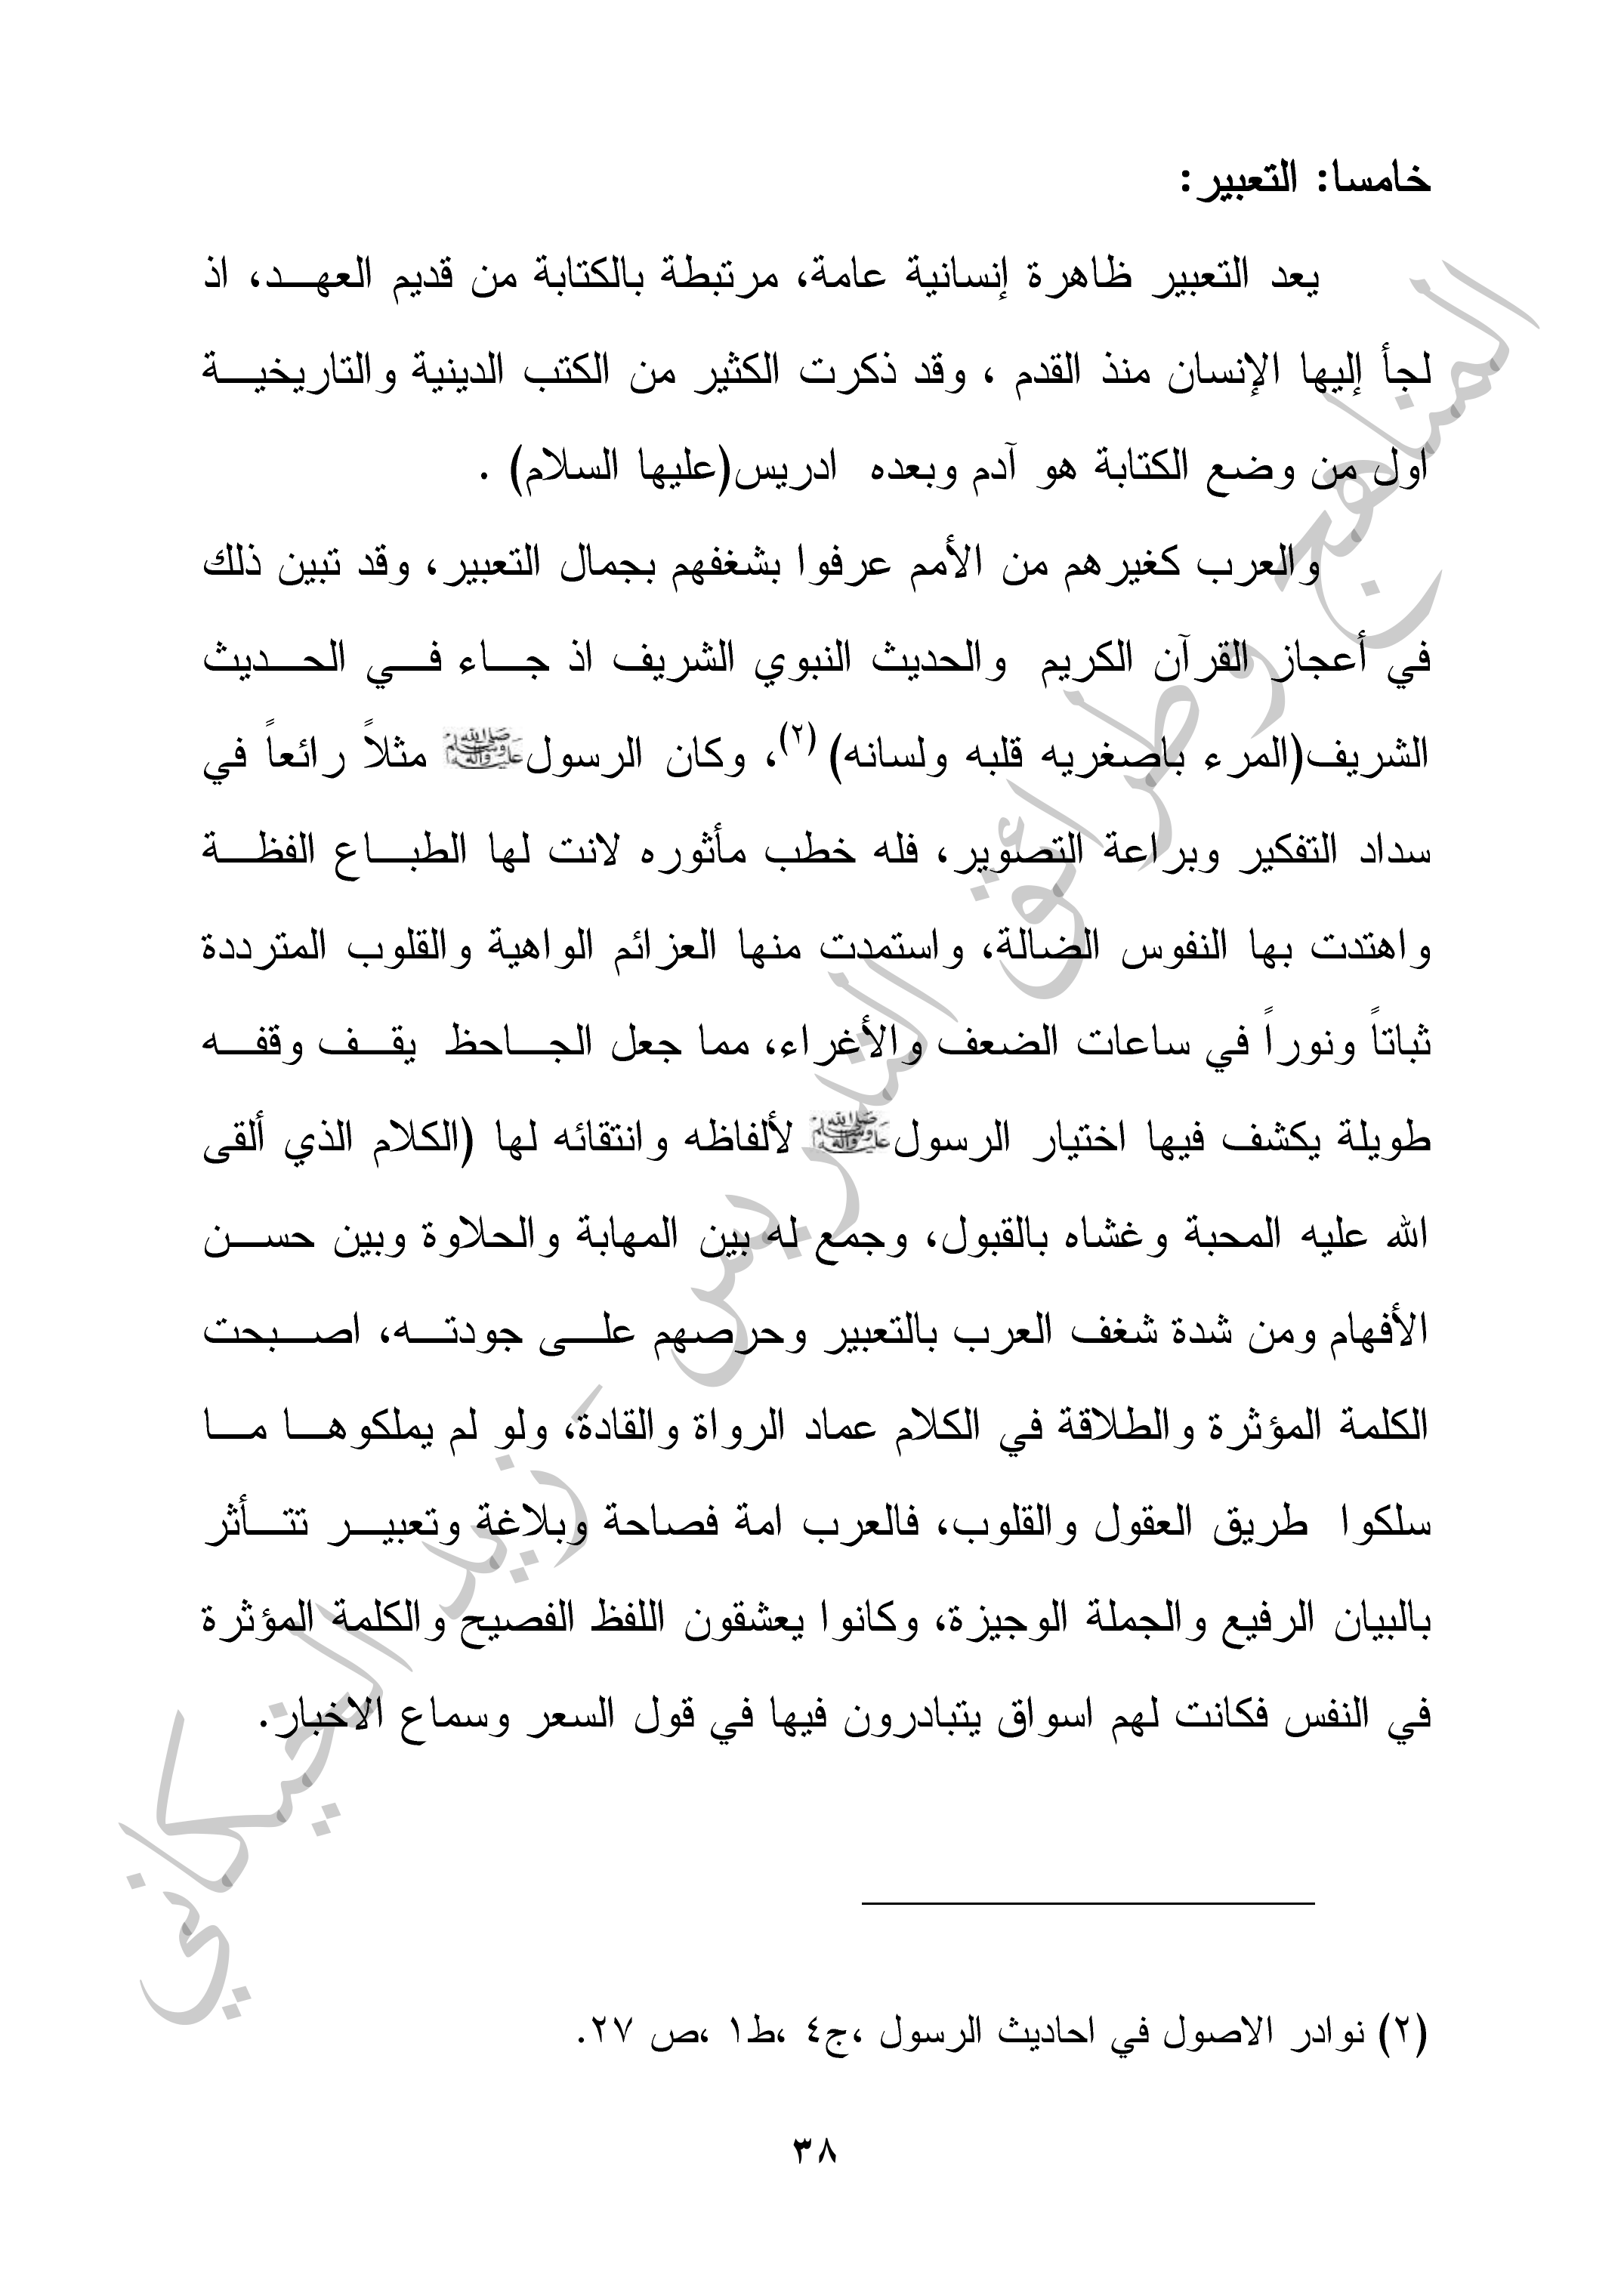 خامسا: التعبير:
يعد التعبير ظاهرة إنسانية عامة، مرتبطة بالكتابة من قديم العهـــد، اذ
لجأ إليها الإنسان منذ القدم ، وقد ذكرت الكثير من الكتب الدينية والتاريخيـــة
اول من وضع الكتابة هو آدم وبعده ادريس(عليها السلام) .
والعرب كغيرهم من الأمم عرفوا بشغفهم بجمال التعبير، وقد تبين ذلك
في أعجاز القرآن الكريم والحديث النبوي الشريف اذ جـــاء فـــي الحـــديث
الشريف(المرء باصغريه قلبه ولسانه)(٢)، وكان الرسولﷺ مثلاً رائعاً في
سداد التفكير وبراعة التصوير، فله خطب مأثوره لانت لها الطبـــاع الفظـــة
واهتدت بها النفوس الضالة، واستمدت منها العزائم الواهية والقلوب المترددة
ثباتاً ونوراً في ساعات الضعف والأغراء، مما جعل الجـــاحظ يقـــف وقفـــه
طويلة يكشف فيها اختيار الرسولﷺ لألفاظه وانتقائه لها (الكلام الذي ألقى
الله عليه المحبة وغشاه بالقبول، وجمع له بين المهابة والحلاوة وبين حســـن
الأفهام ومن شدة شغف العرب بالتعبير وحرصهم علـــى جودتـــه، اصـــبحت
الكلمة المؤثرة والطلاقة في الكلام عماد الرواة والقادة، ولو لم يملكوهـــا مـــا
سلكوا طريق العقول والقلوب، فالعرب امة فصاحة وبلاغة وتعبيـــر تتـــأثر
بالبيان الرفيع والجملة الوجيزة، وكانوا يعشقون اللفظ الفصيح والكلمة المؤثرة
في النفس فكانت لهم اسواق يتبادرون فيها في قول السعر وسماع الاخبار.
(٢) نوادر الاصول في احاديث الرسول ،ج٤ ،ط١ ،ص ٢٧.
٣٨
المناهج وطرائق التدريس - زيد الخيكاني